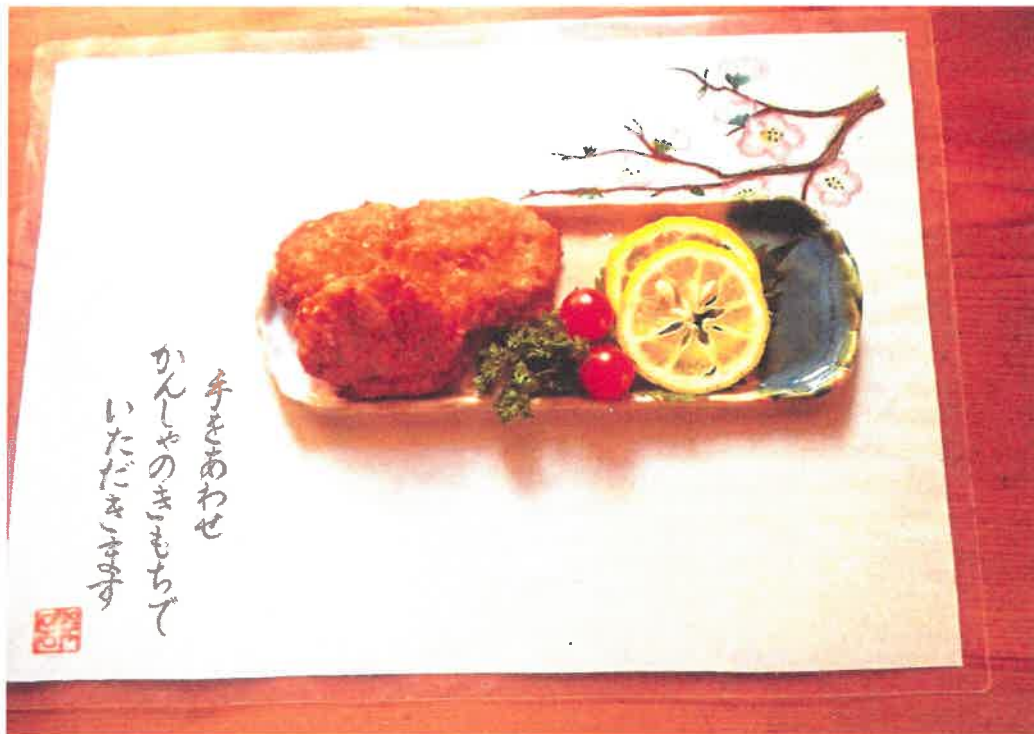 手をあわせ
かんしゃのきもちで
いただきます